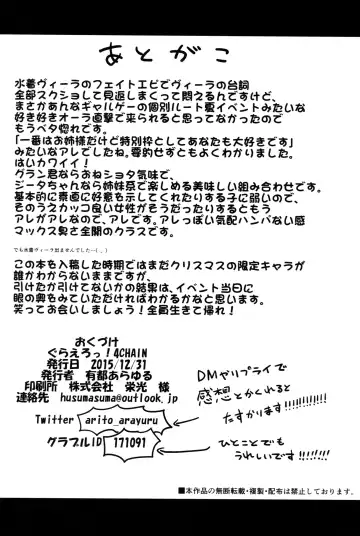 あとがこ
水着ヴィーラのフェイトエピでヴィーラの台詞
全部スクショして見返しまくって悶えるんですけど、
まさかあんなギャルゲーの個別ルート夏イベントみたいな
好き好きオーラ直撃で来られると思ってなかったので
もうベタ惚れです。
「一番はお姉様だけど特別枠としてあなたも大好きです」
みたいなアレでしたね。要約せずともよくわかりました。
はいカワイイ！
グラン君ならおねショタ気味で、
ジータちゃんなら姉妹萘で楽しめる美味しい組み合わせです。
基本的に素直に好意を示してくれたりする子に弱いので、
そのうえカッコ良い女性がそうだったりするともう
アレがアレなので、アレです。アレっぽい気配ハンパない感
マックス奥さ全開のクラスです。
でも水着ヴィーラ出ませんでした…(._.)
この本を入稿した時期ではまだクリスマスの限定キャラが
誰かわからないままですが、
引けたか引けてないかの結果は、イベント当日に
眼の奥をみていただければわかるかなと思います。
笑ってお会いしましょう！全員生きて帰れ！
おくづけ
ぐらえろっ！4CHAIN
発行日 2015/12/31
発行者 有都あらゆる
印刷所 株式会社 栄光 様
連絡先 husumasuma@outlook.jp
Twitter arito_arayuru
グラブルID 171091
DMやリプライで
感想とかくれると
たすかります!!!!!!!!!!
ひとことでも
うれしいです!!!!!!
■本作品の無断転載・複製・配布は禁止しております。